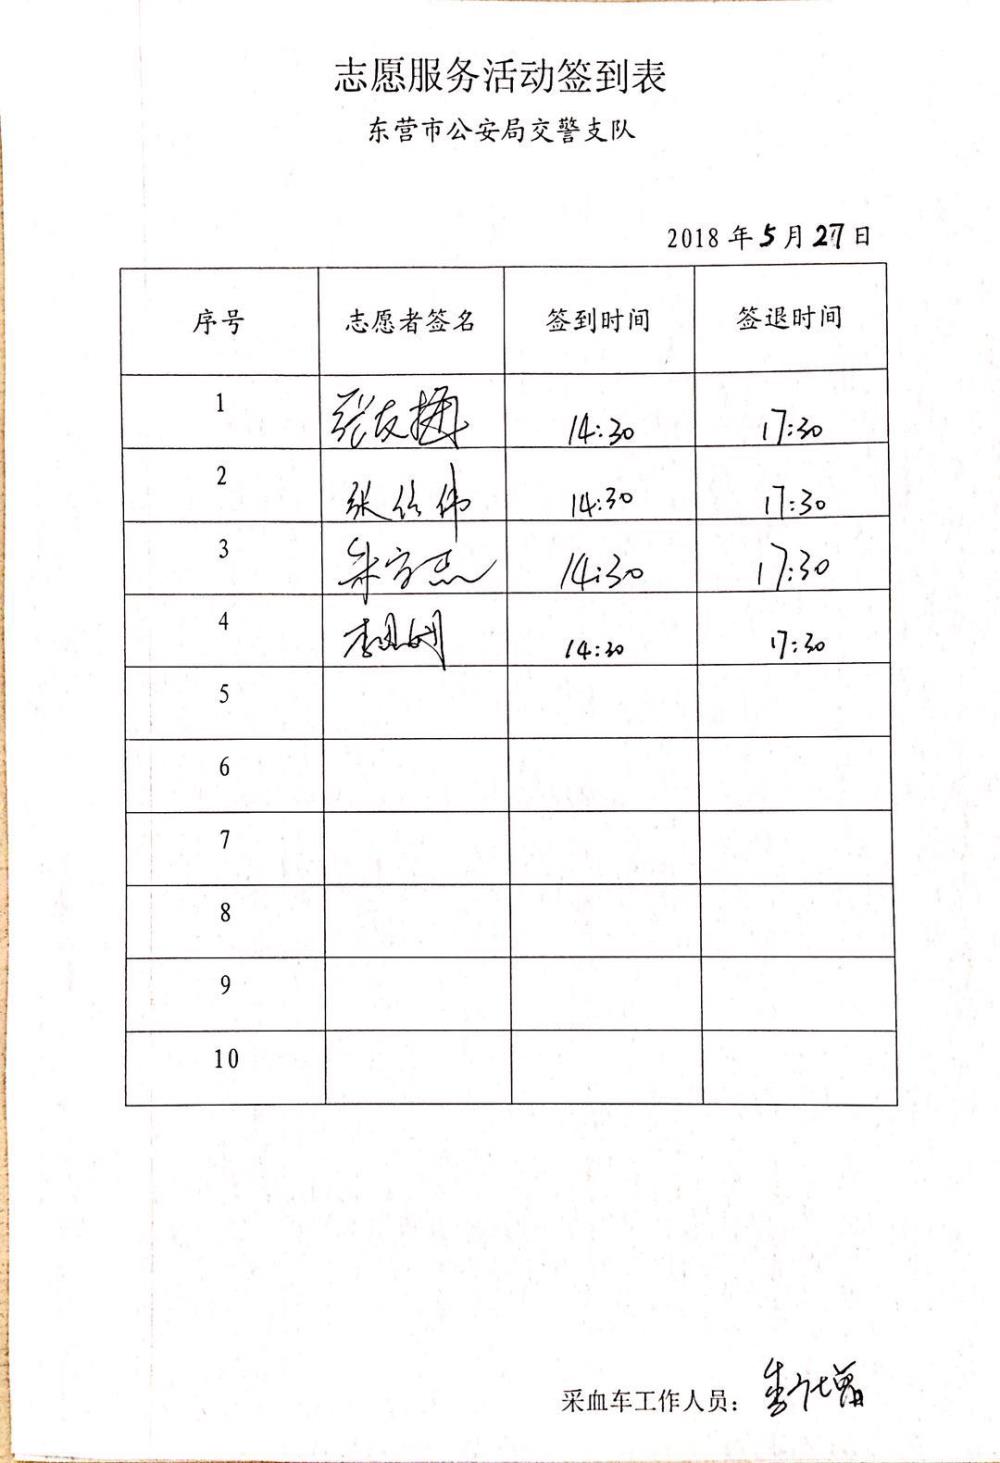 志愿服务活动签到表
东营市公安局交警支队
2018 年 5 月 27 日
序号 志愿者签名 签到时间 签退时间
1 张友 14:30 17:30
2 张 伟 14:30 17:30
3 朱 杰 14:30 17:30
4 李 14:30 17:30
5
6
7
8
9
10
采血车工作人员：